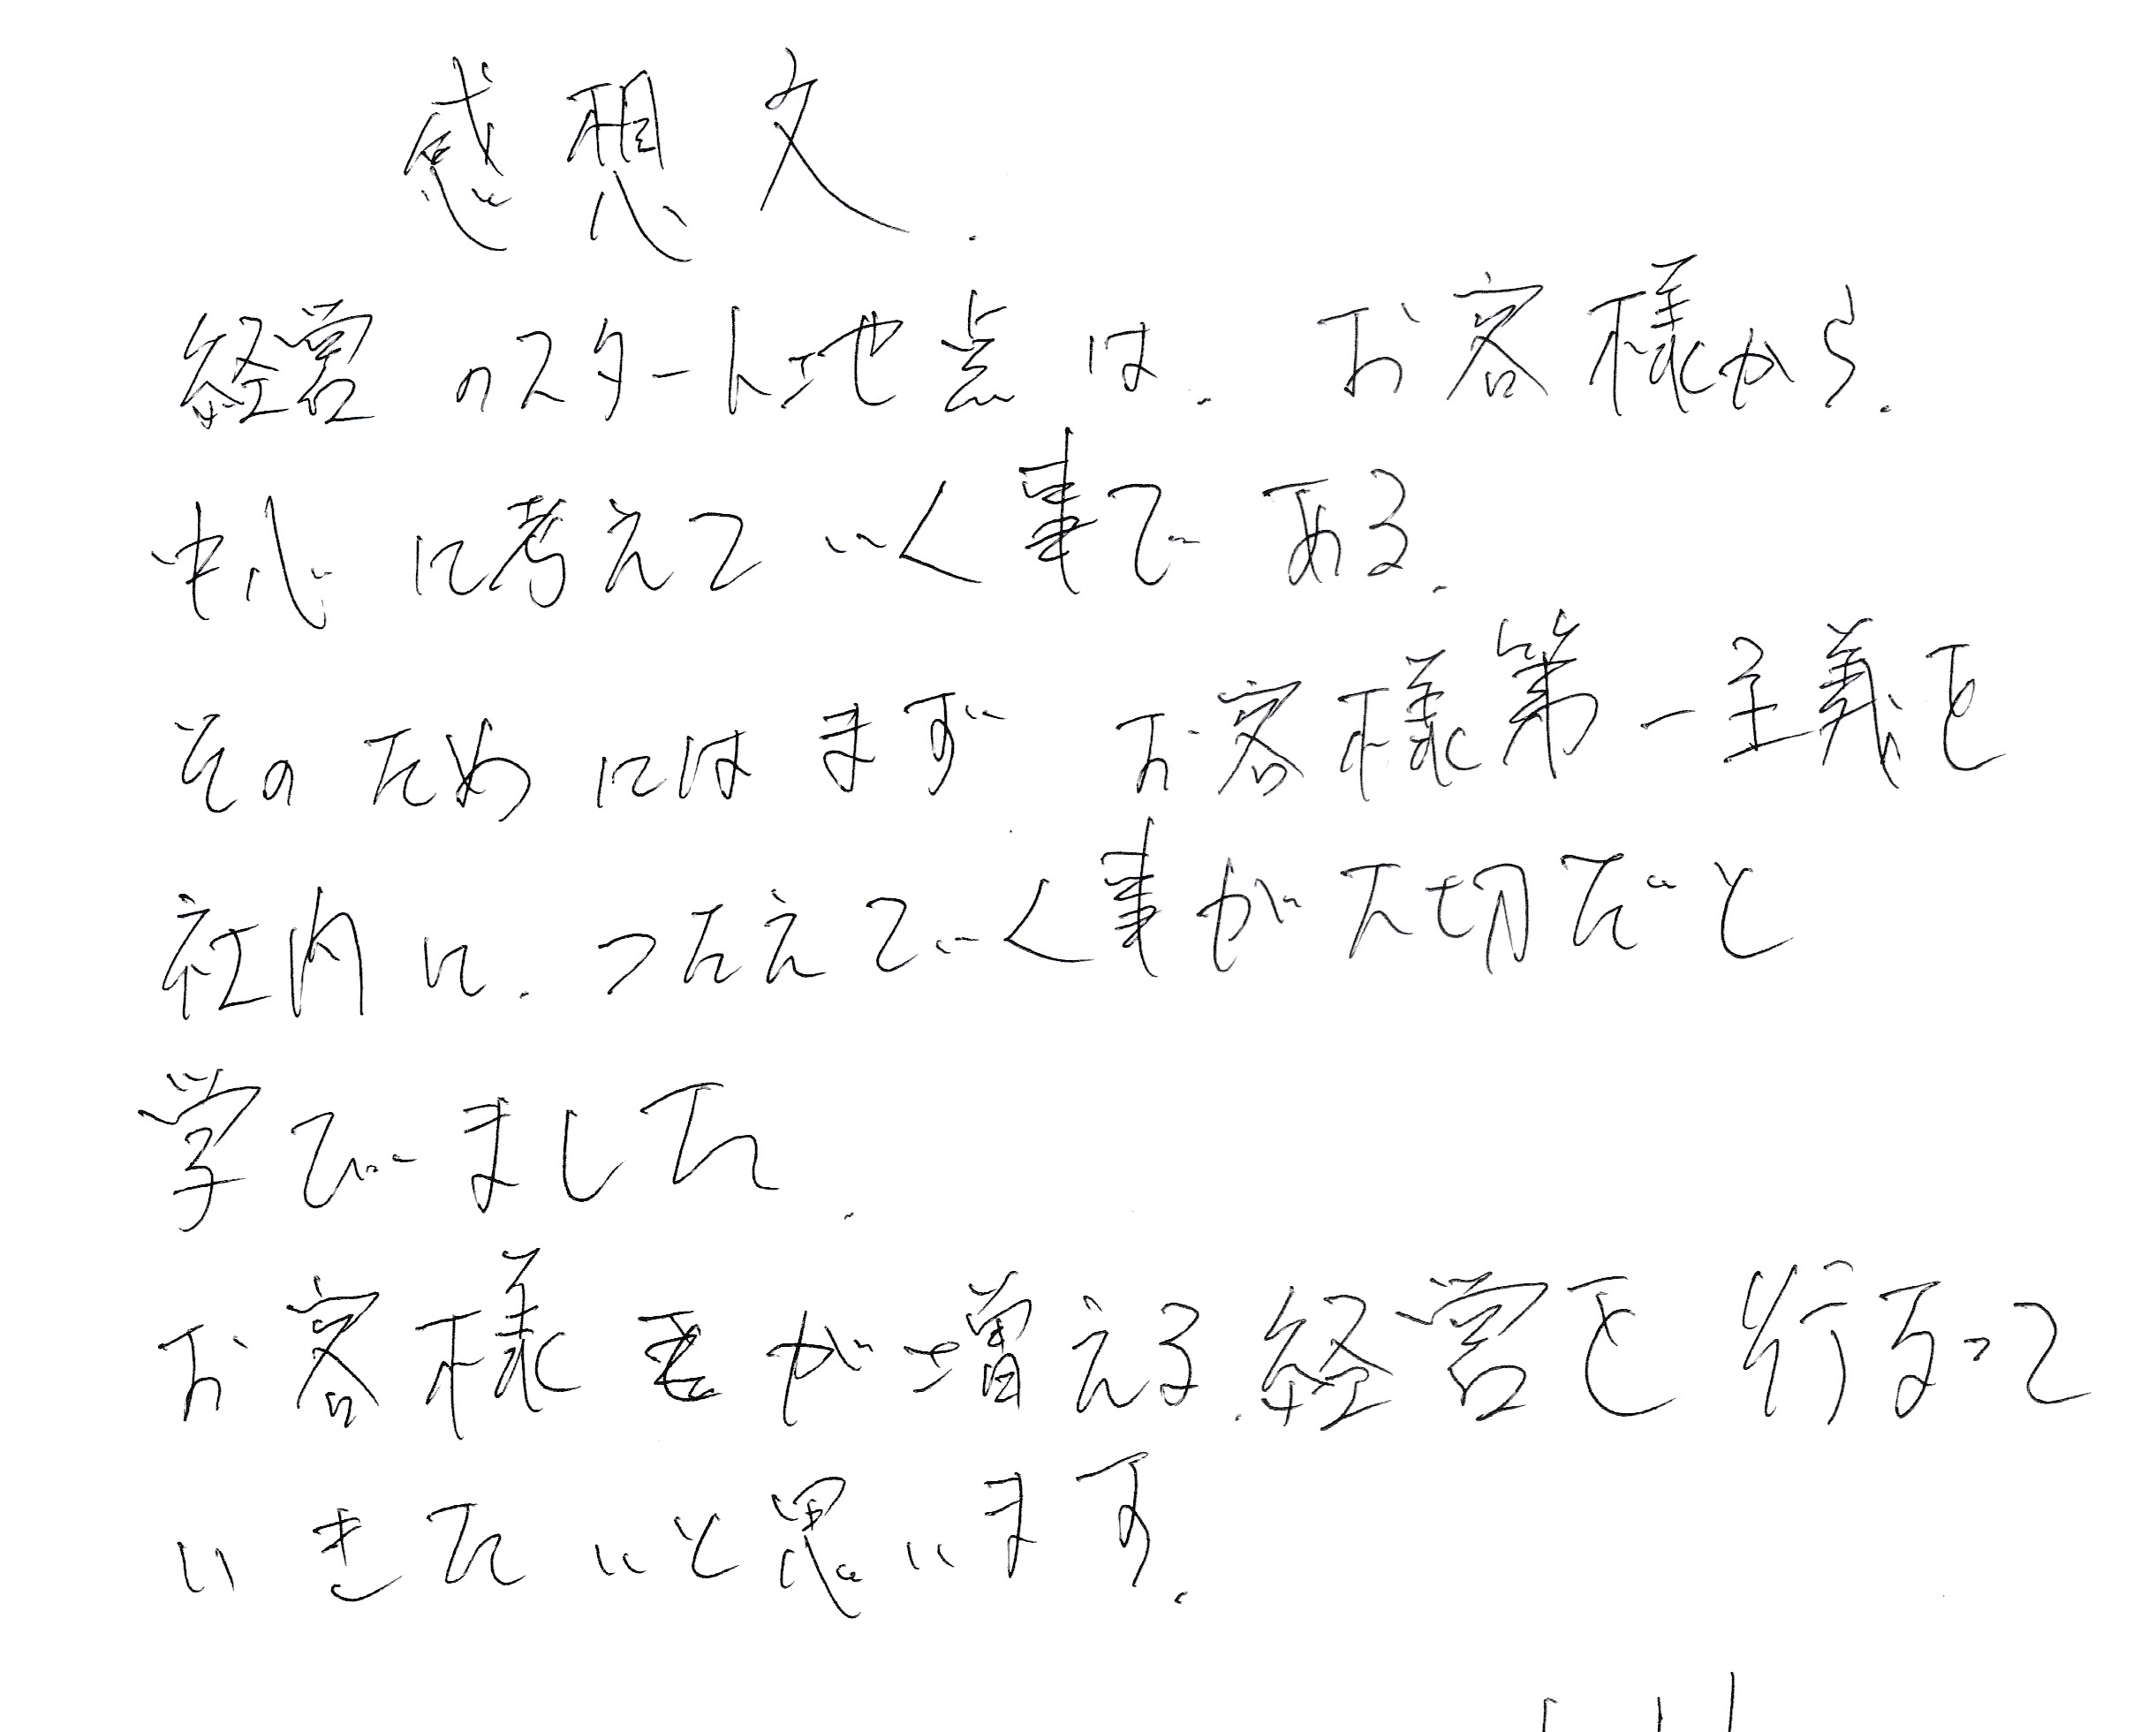 感想文.
経営のスタート地点は. お客様から.
中心に考えていく事である.
そのためにはまず お客様第一主義を
社内に. つたえていく事が大切だと
学でいました.
お客様が増える.経営を行なって
いきたいと思います.